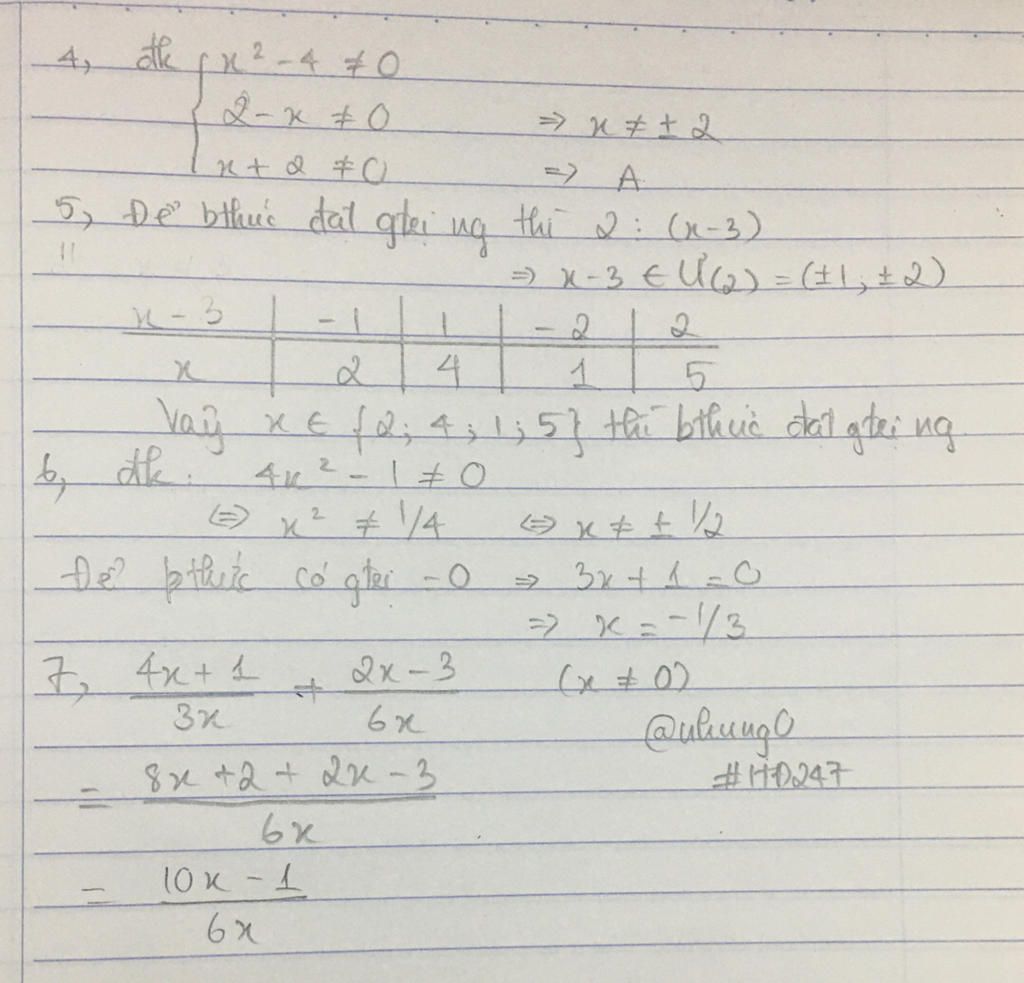 4, đk { x² - 4 ≠ 0
2 - x ≠ 0 => x ≠ ± 2
x + 2 ≠ 0 => A
5, Để bthức đạt gtrị ng thì 2 : (x-3)
=> x-3 ∈ Ư(2) = (±1; ±2)
x - 3 | -1 | 1 | -2 | 2
x | 2 | 4 | 1 | 5
Vậy x ∈ {2; 4; 1; 5} thì bthức đạt gtrị ng
6, đk: 4x² - 1 ≠ 0
<=> x² ≠ 1/4 <=> x ≠ ± 1/2
Để pthức có gtrị = 0 => 3x + 1 = 0
=> x = -1/3
7, (4x + 1)/(3x) + (2x - 3)/(6x) (x ≠ 0)
@nhung0
= (8x + 2 + 2x - 3)/(6x) #HD247
= (10x - 1)/(6x)